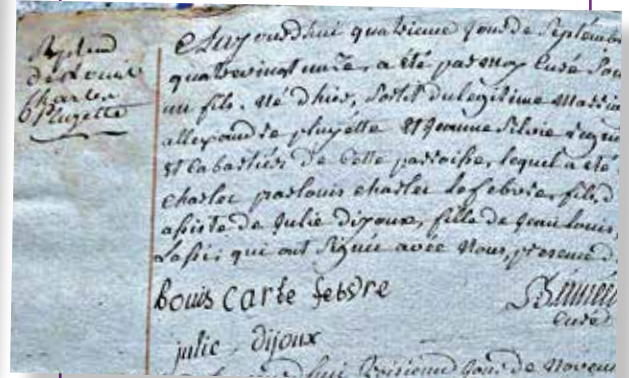 Bap.
de Louis
Charles
Pluyette
Aujourdhui quatrieme jour de Septembre
quatrevingt onze, a été par moy Curé Sou
un fils. Né d'hier, Sorti du légitime Maria
allexandre pluyette Et Jeanne Silvie
Et Cabartier de Cette paroisse, lequel a été
charles par louis charles lefebvre, fils d
assisté de Julie dijoux, fille de Jean louis,
qui ont Signée avec Nous, presence d
Louis Carle febvre
Curé
julie dijoux
jour de Novem